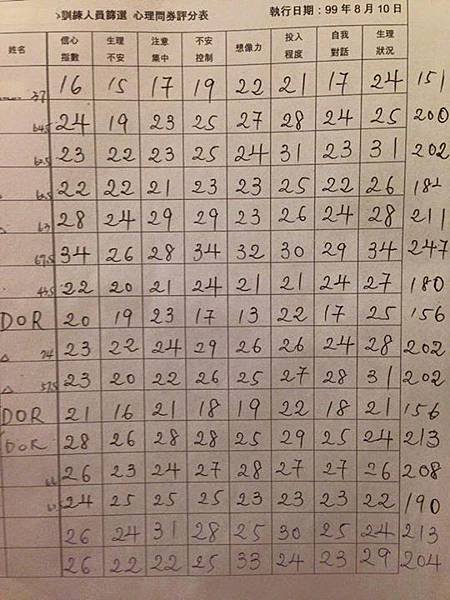 訓練人員篩選 心理問券評分表 執行日期：99年8月10日
姓名 信心指數 生理不安 注意集中 不安控制 想像力 投入程度 自我對話 生理狀況
37 16 15 17 19 22 21 17 24 151
64.5 24 19 23 25 27 28 24 25 200
62.5 23 22 23 25 24 31 23 31 202
62.5 22 22 21 23 23 25 22 26 184
△ 63 28 24 29 29 23 26 24 28 211
67.5 34 26 28 34 32 30 29 34 247
43.5 22 20 21 24 21 21 24 27 180
DOR 20 19 23 17 13 22 17 25 156
△ 74 23 22 24 29 26 26 24 28 202
△ 57.5 23 20 22 26 25 27 28 31 202
DOR 21 16 21 18 19 22 18 21 156
DOR 28 26 28 28 25 29 25 24 213
26 23 24 27 28 27 27 26 208
24 25 25 25 23 23 23 22 190
26 24 31 28 25 30 25 24 213
26 22 22 25 33 24 23 29 204